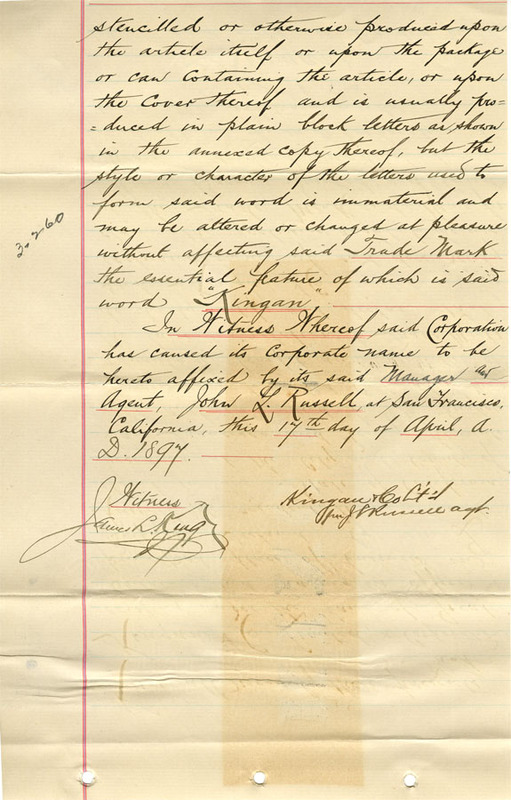 stencilled or otherwise produced upon
the article itself or upon the package
or can containing the article, or upon
the Cover thereof and is usually pro=
=duced in plain block letters as shown
in the annexed copy thereof, but the
style or character of the letters used to
form said word is immaterial and
may be altered or changed at pleasure
without affecting said Trade Mark
the essential feature of which is said
word "Kingan"
In Witness Whereof said Corporation
has caused its Corporate name to be
hereto affixed by its said Manager and
Agent, John L. Russell, at San Francisco,
California, this 17th day of April, A.
D. 1897.
3260
Witness
James L. King
Kingan & Co L't'd
per J L Russell agt.